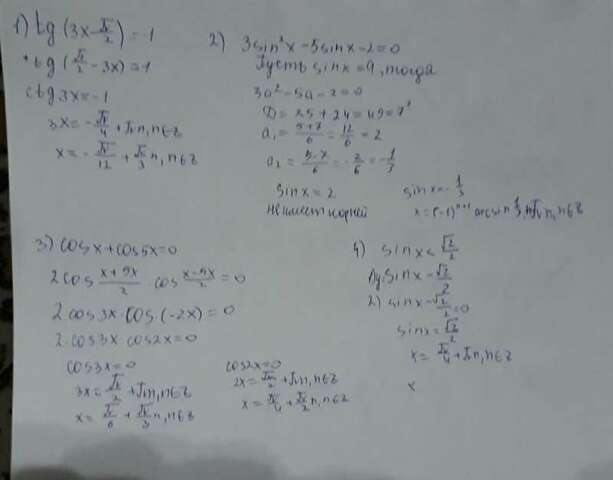 1) tg(3x - π/2) = -1
-tg(π/2 - 3x) = 1
ctg 3x = -1
3x = -π/4 + πn, n∈Z
x = -π/12 + π/3 n, n∈Z
2) 3sin²x - 5sinx - 2 = 0
Пусть sinx = a, тогда
3a² - 5a - 2 = 0
D = 25 + 24 = 49 = 7²
a₁ = (5+7)/6 = 12/6 = 2
a₂ = (5-7)/6 = -2/6 = -1/3
sinx = 2
не имеет корней
sinx = -1/3
x = (-1)ⁿ⁺¹ arcsin 1/3 + πn, n∈Z
3) cosx + cos5x = 0
2cos (x+5x)/2 · cos (x-5x)/2 = 0
2 cos3x · cos(-2x) = 0
2 · cos3x · cos2x = 0
cos3x = 0
3x = π/2 + πn, n∈Z
x = π/6 + π/3 n, n∈Z
cos2x = 0
2x = π/2 + πn, n∈Z
x = π/4 + π/2 n, n∈Z
4) sinx < √2/2
1) y = sinx - √2/2
2) sinx - √2/2 = 0
sinx = √2/2
x = π/4 + πn, n∈Z
x